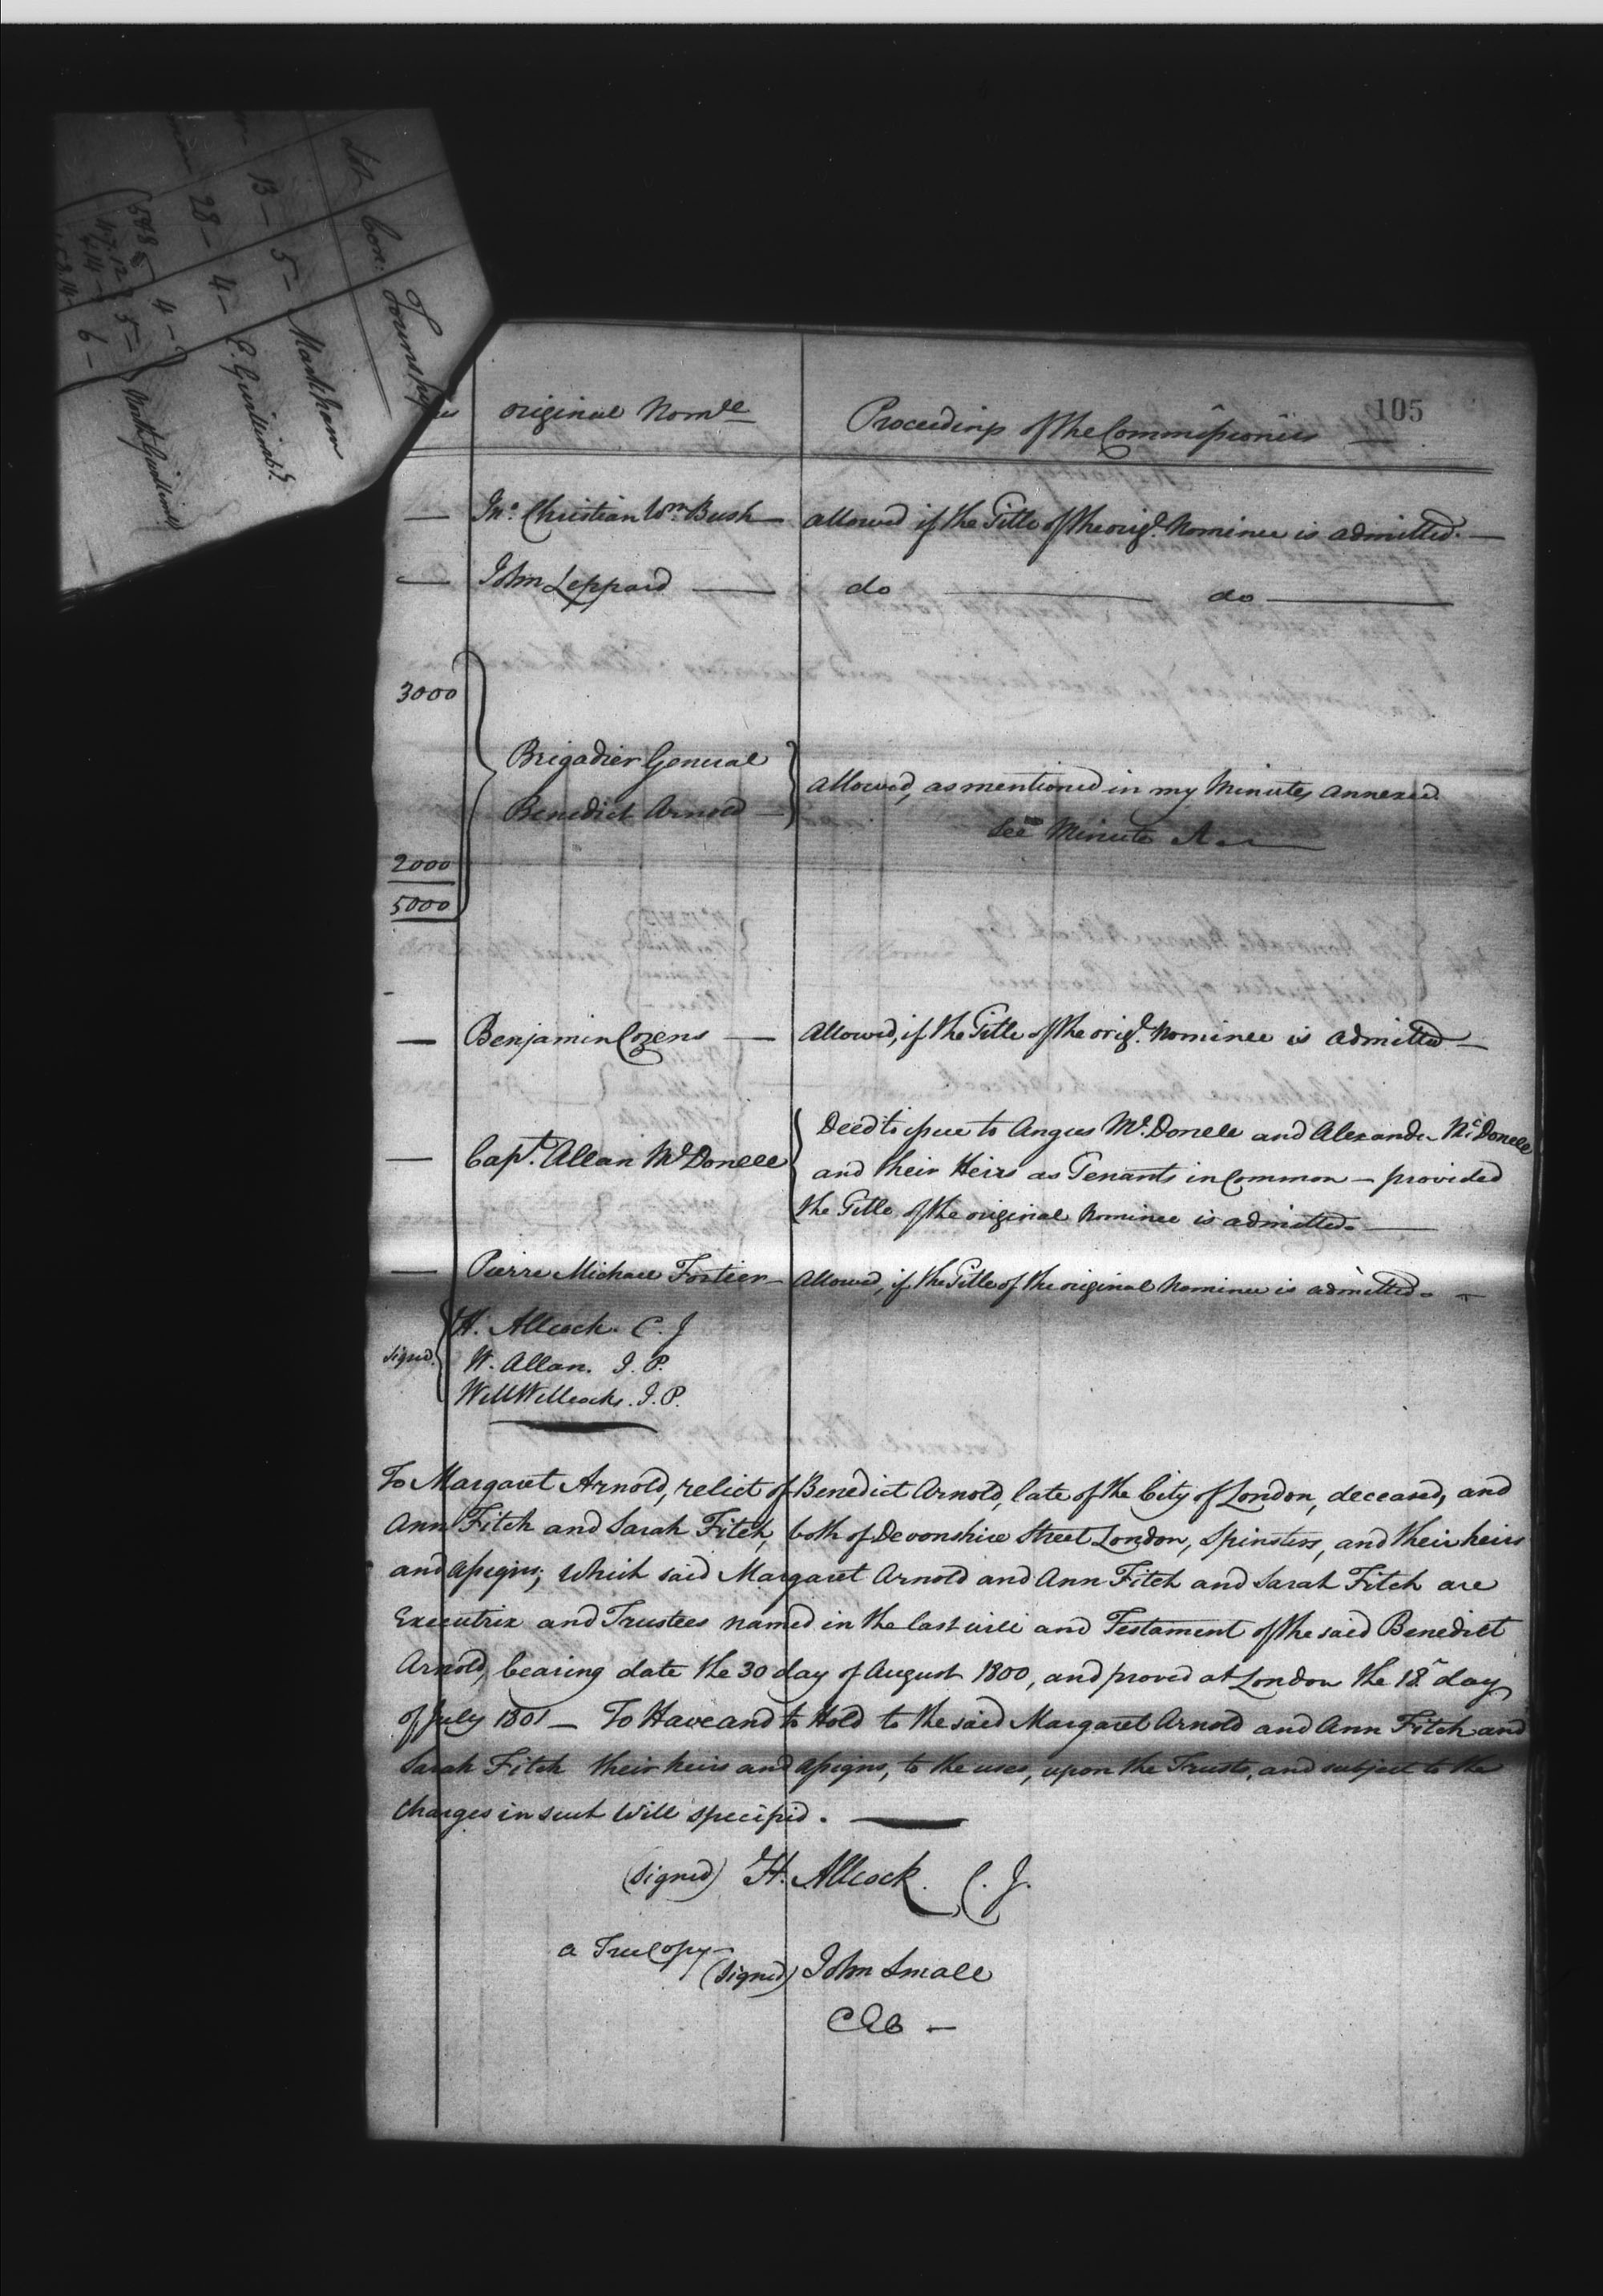 Lot Con: Township
13 - 5 - Markham
28 - 4 - E. Gwillimb.y
548 4 -
5 - North Gwillimb.y
6 -
105
original Nomee Proceedings of the Commissioners
— Jno. Christian Wm. Bush — allowed if the Title of the origl. Nominee is admitted. —
— John Leppard — do — do —
3000
Brigadier General
Benedict Arnold — allowed, as mentioned in my Minutes annexed.
See Minute A. —
2000
5000
— Benjamin Cozens — allowed, if the Title of the origl. Nominee is admitted —
— Capt. Allan McDonell Deed to issue to Angus McDonell and Alexander McDonell
and their Heirs as Tenants in Common — provided
the Title of the original Nominee is admitted. —
— Pierre Michael Fortier — allowed, if the Title of the original Nominee is admitted. —
signed. H. Allcock. C. J
W. Allan. J. P.
Will Willcocks. J. P.
To Margaret Arnold, relict of Benedict Arnold, late of the City of London, deceased, and
Ann Fitch and Sarah Fitch, both of Devonshire Street London, Spinsters, and their heirs
and assigns; which said Margaret Arnold and Ann Fitch and Sarah Fitch are
Executrix and Trustees named in the last will and Testament of the said Benedict
Arnold, bearing date the 30 day of August 1800, and proved at London the 18. day
of July 1801 — To Have and to Hold to the said Margaret Arnold and Ann Fitch and
Sarah Fitch their heirs and assigns, to the uses, upon the Trusts, and subject to the
Charges in such Will specified. —
(signed) H. Allcock. C. J.
a True Copy —
(signed) John Small